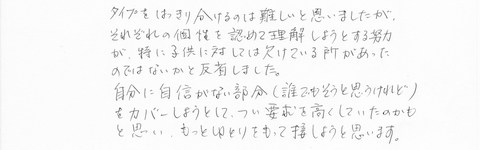 タイプをはっきり分けるのは難しいと思いましたが、
それぞれの個性を認めて理解しようとする努力
が、特に子供に対しては欠けている所があった
のではないかと反省しました。
自分に自信がない部分(誰でもそうと思うけれど)
をカバーしようとして、つい要求を高くしていたのかも
と思い、もっとゆとりをもって接しようと思います。